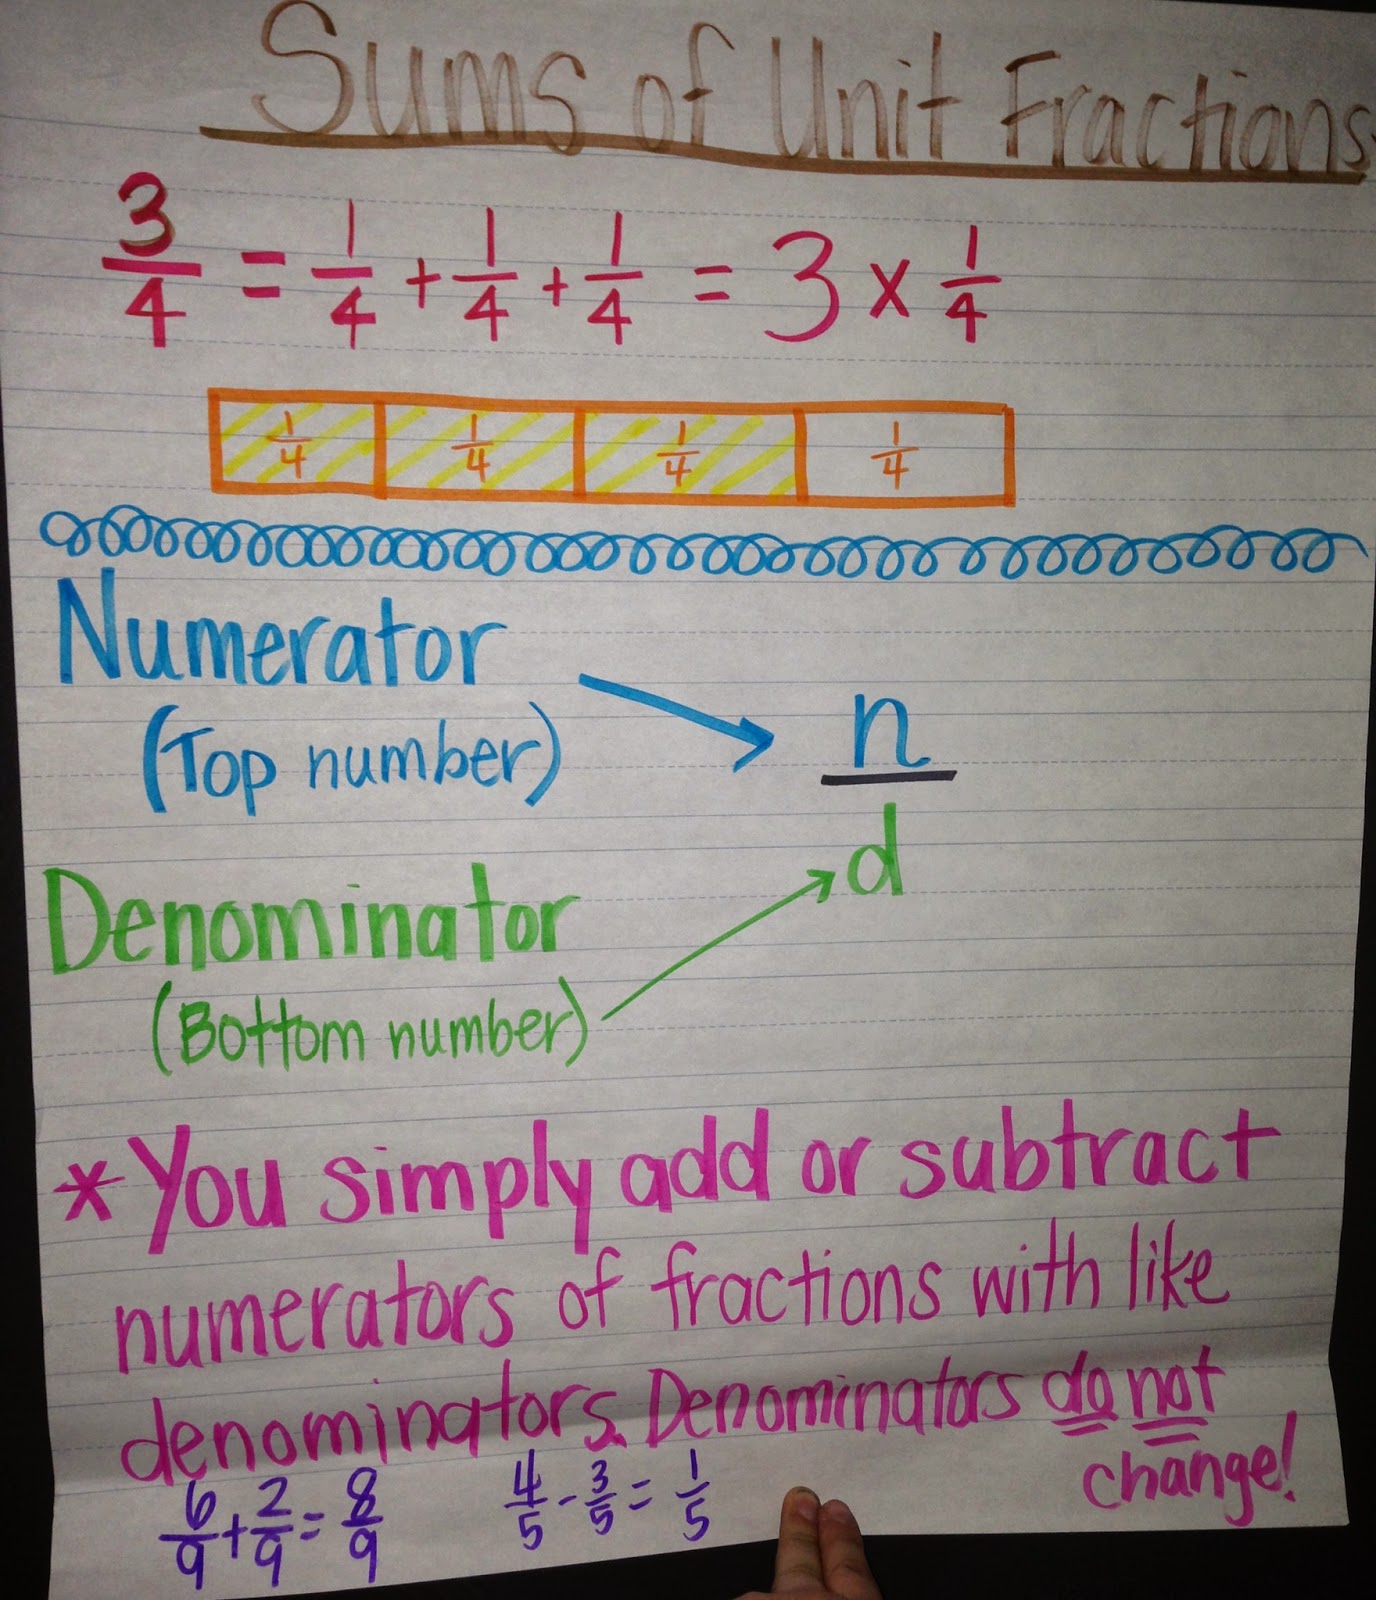 Sums of Unit Fractions
3/4 = 1/4 + 1/4 + 1/4 = 3 x 1/4
1/4 1/4 1/4 1/4
Numerator
(Top number)
n
d
Denominator
(Bottom number)
*You simply add or subtract
numerators of fractions with like
denominators. Denominators do not
change!
6/9 + 2/9 = 8/9 4/5 - 3/5 = 1/5